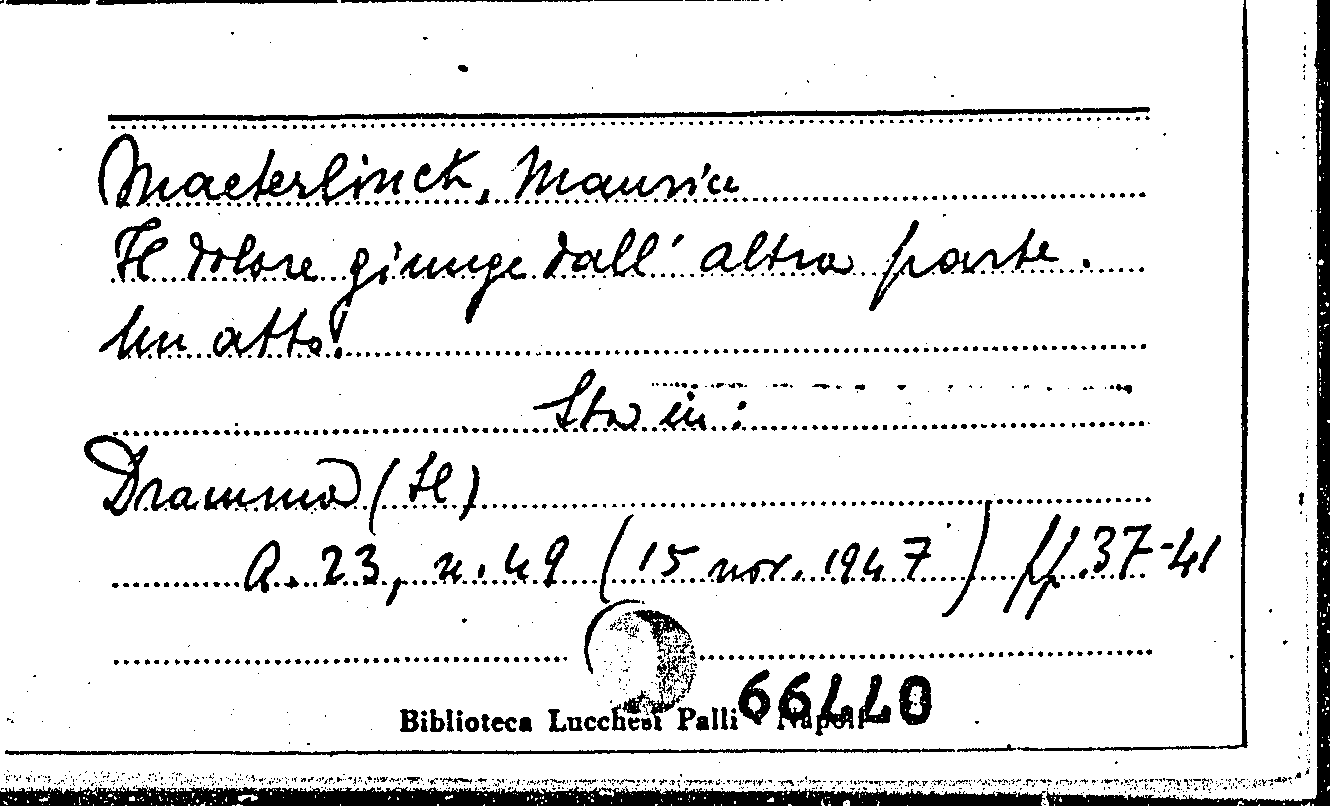 Maeterlinck, Maurice
Il dolore giunge dall' altra parte.
Un atto.
Sta in:
Dramma (Il)
A. 23, n. 49 (15 nov. 1947) pp. 37-41
66440
Biblioteca Lucchesi Palli - Napoli